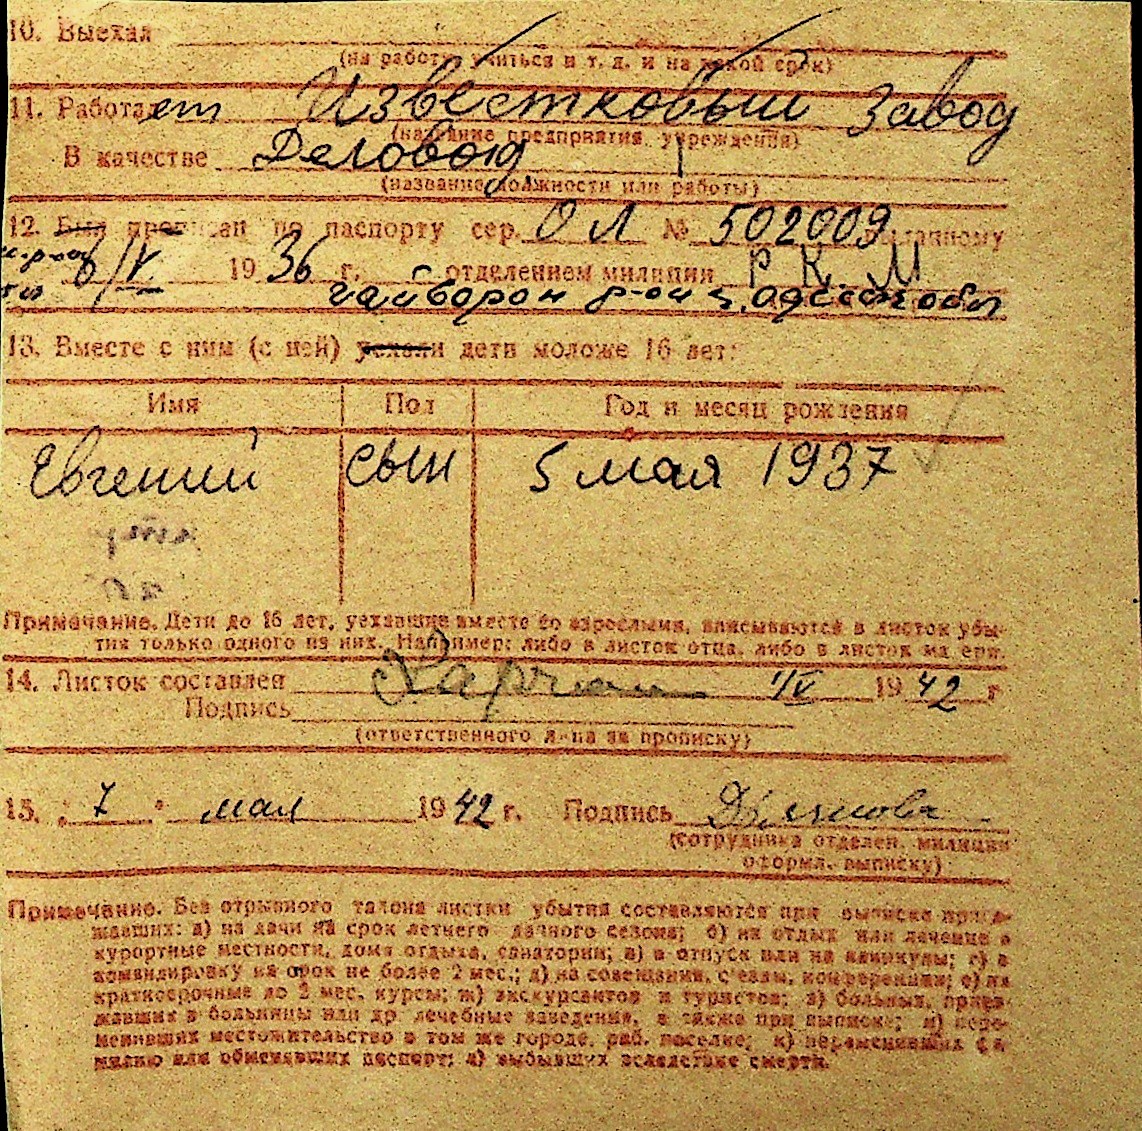 10. Выехал
(на работу, учиться и т. д. и на какой срок)
11. Работает Известковый завод
(название предприятия, учреждения)
В качестве Деловод
(название должности или работы)
12. Был прописан по паспорту сер. ОЛ № 502009 выданному
6/V. 1936 г. отделением милиции РКМ
р-он Одесской обл
13. Вместе с ним (с ней) уехали дети моложе 16 лет:
Имя Пол Год и месяц рождения
Евгений сын 5 мая 1937
Примечание. Дети до 16 лет, уехавшие вместе со взрослыми, вписываются в листок убы-
тия только одного из них. Например: либо в листок отца, либо в листок матери.
14. Листок составлен IV 1942 г
Подпись
(ответственного л-ца за прописку)
15. „ 7 " мая 1942 г. Подпись
(сотрудника отделен. милиции
оформл. выписку)
Примечание. Без отрывного талона листки убытия составляются при выписке приез-
жавших: а) на дачи на срок летнего дачного сезона; б) на отдых или лечение в
курортные местности, дома отдыха, санатории; в) в отпуск или на каникулы; г) в
командировку на срок не более 2 мес.; д) на совещания, с'езды, конференции; е) на
краткосрочные до 2 мес. курсы; ж) экскурсантов и туристов; з) больных, приез-
жавших в больницы или др лечебные заведения, а также при выписке; и) пере-
менивших местожительство в том же городе, раб. поселке; к) переменивших фа
милию или обменявших паспорт; л) выбывших вследствие смерти.